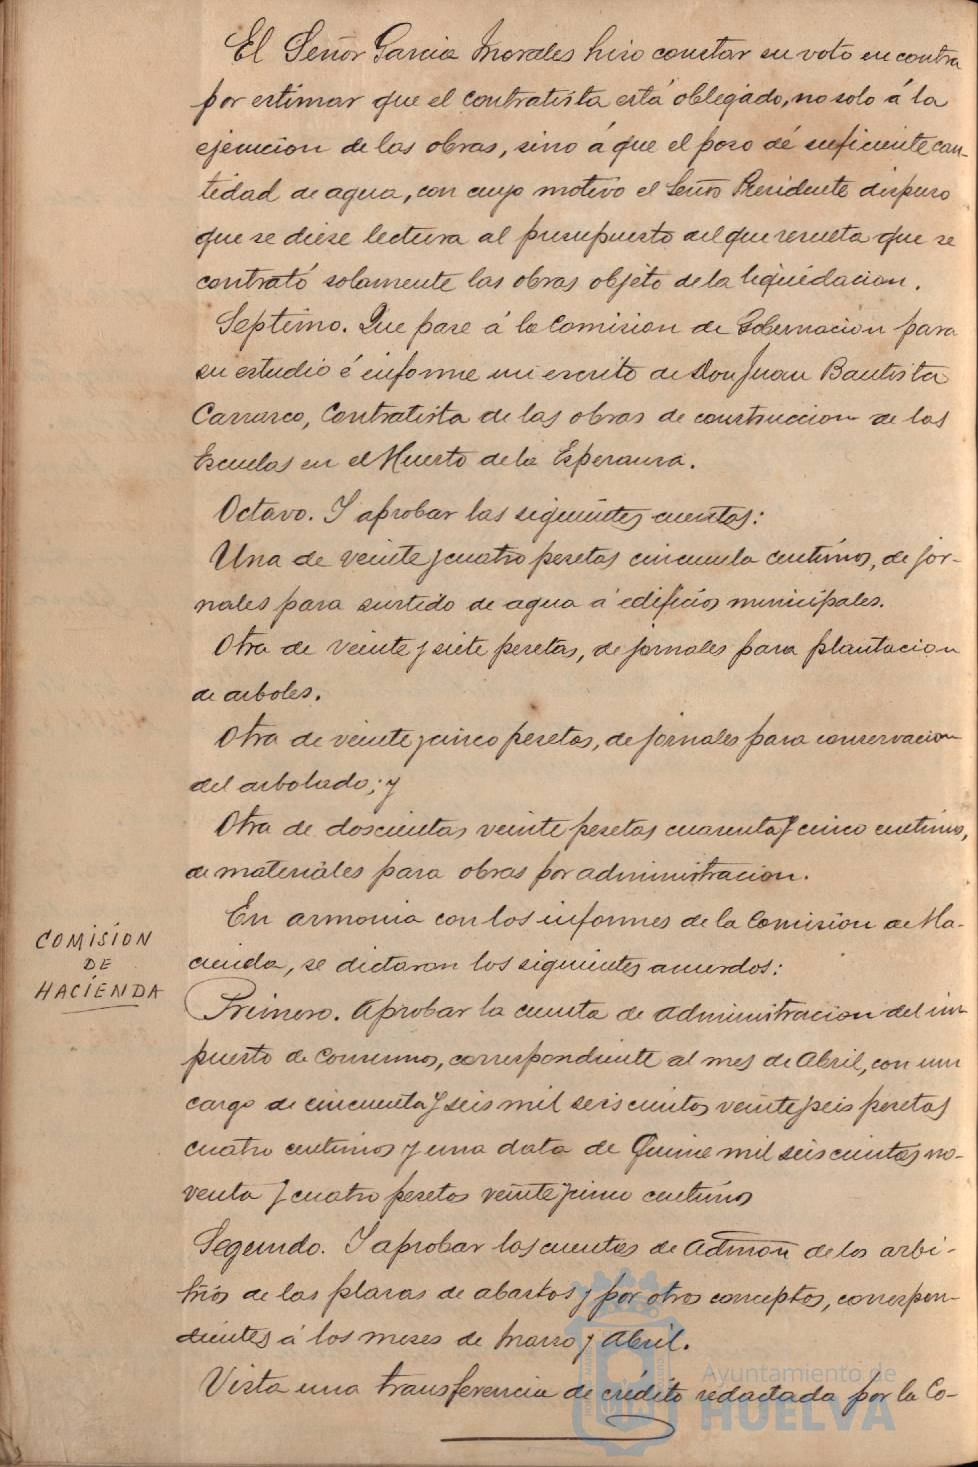 El Señor Garcia Morales hiso constar su voto en contra
por estimar que el contratista está oblegado, no solo á la
ejecucion de las obras, sino á que el poso dé suficiente can-
tidad de agua, con cuyo motivo el Señor Presidente dispuso
que se diese lectura al presupuesto del que resulta que se
contrató solamente las obras objeto de la liquidacion.
Septimo. Que pase á la Comision de Gobernacion para
su estudio é informe un escrito de Don Juan Bautista
Carrasco, Contratista de las obras de construccion de las
Escuelas en el Huerto de la Esperansa.
Octavo. Y aprobar las siguientes cuentas:
Una de veinte y cuatro pesetas cincuenta centimos, de jor-
nales para surtido de agua a edificios municipales.
Otra de veinte y siete pesetas, de jornales para plantacion
de arboles.
Otra de veinte y cinco pesetas, de jornales para conservacion
del arbolado; y
Otra de doscientas veinte pesetas cuarenta y cinco centimos,
de materiales para obras por administracion.
En armonia con los informes de la Comision de Ha-
COMISION
DE
HACIENDA
cienda, se dictaron los siguientes acuerdos:
Primero. Aprobar la cuenta de administracion del im-
puesto de Consumos, correspondiente al mes de Abril, con un
cargo de cincuenta y seis mil seiscientos veinte y seis pesetas
cuatro centimos y una data de Quince mil seiscientas no-
venta y cuatro pesetas veinte y cinco centimos
Segundo. Y aprobar las cuentas de Admon de los arbi-
trios de las plasas de abastos y por otros conceptos, correspon-
dientes á los meses de Marso y Abril.
Vista una transferencia de crédito redactada por la Co-
Ayuntamiento de
HUELVA